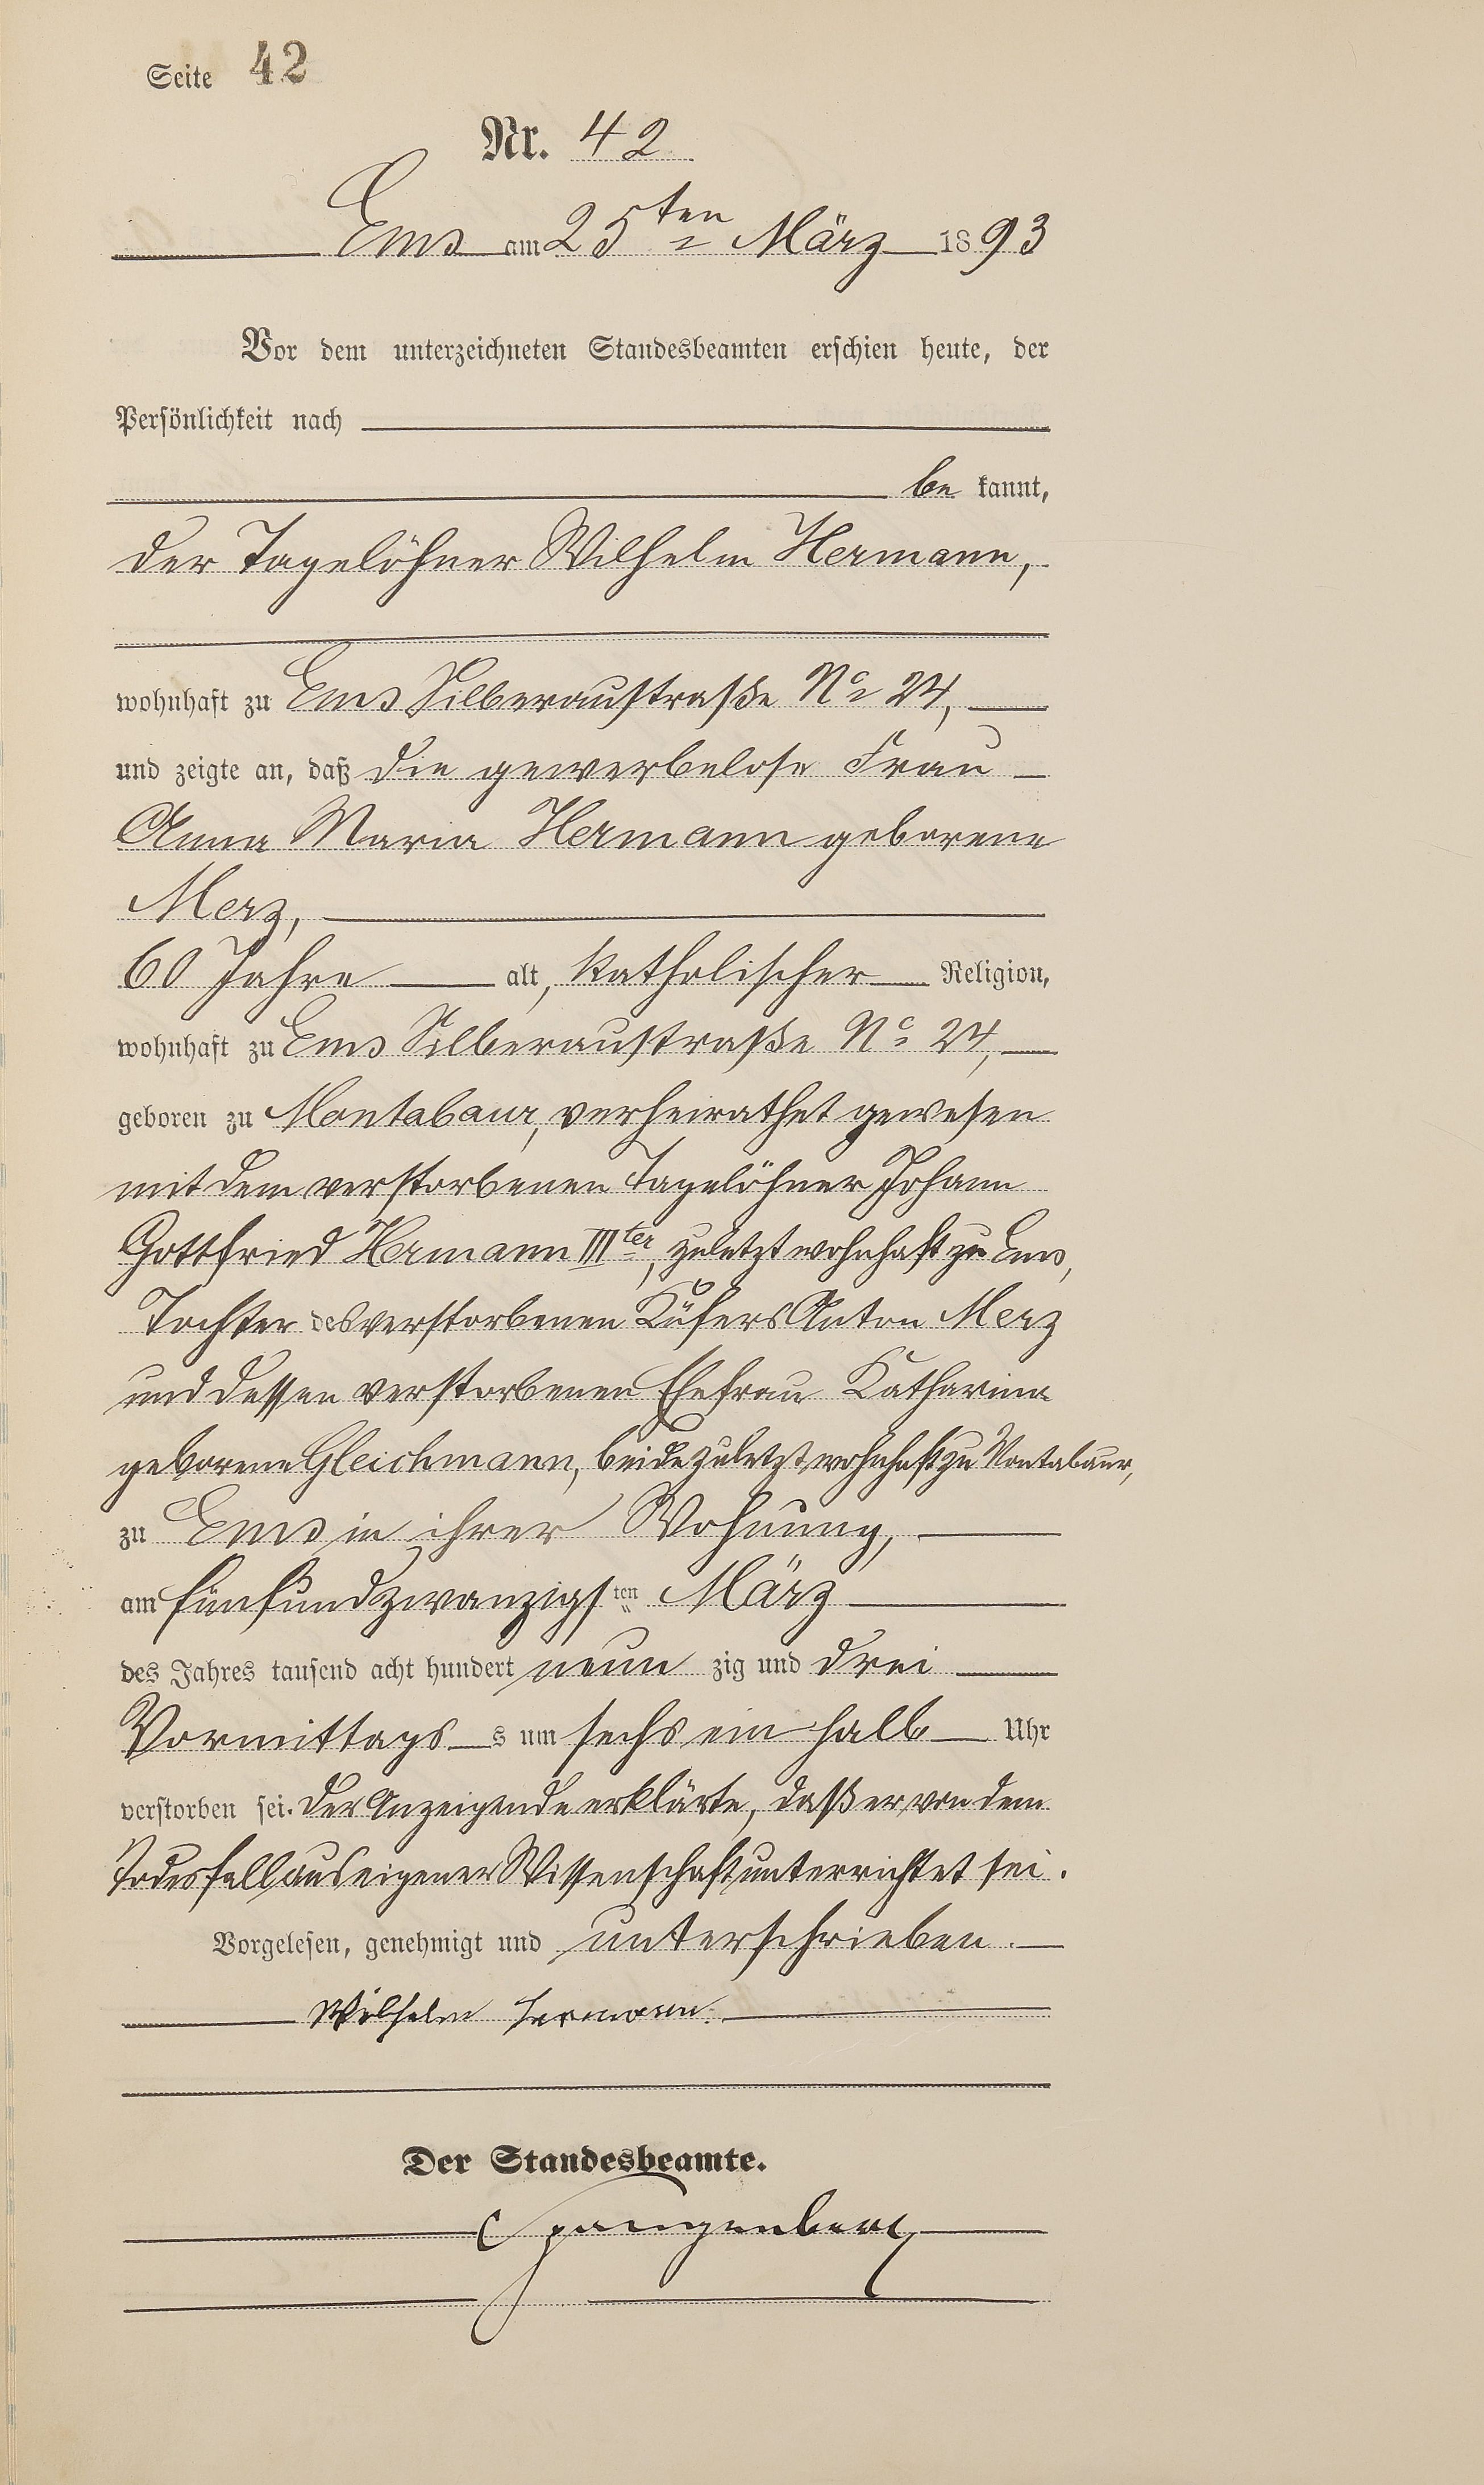 Seite 42
Nr. 42
Ems am 25ten März 1893
Vor dem unterzeichneten Standesbeamten erschien heute, der
Persönlichkeit nach
be kannt,
der Tagelöhner Wilhelm Hermann,
wohnhaft zu Ems Silberaustraße No 24,
und zeigte an, daß die gewerbelose Frau
Anna Maria Hermann geborene
Merz,
60 Jahre alt, katholischer Religion,
wohnhaft zu Ems Silberaustraße No 24,
geboren zu Montabaur, verheirathet gewesen
mit dem verstorbenen Tagelöhner Johann
Gottfried Hermann IIIter, zuletzt wohnhaft zu Ems,
Tochter des verstorbenen Küfers Anton Merz
und dessen verstorbenen Ehefrau Katharina
geborene Gleichmann, beide zuletzt wohnhaft zu Montabaur,
zu Ems in ihrer Wohnung,
am fünfundzwanzigsten März
des Jahres tausend acht hundert neun zig und drei
Vormittags s um sechs ein halb Uhr
verstorben sei. Der Anzeigende erklärte, daß er von dem
Todesfall aus eigener Wissenschaft unterrichtet sei.
Vorgelesen, genehmigt und unterschrieben.
Wilhelm Hermann.
Der Standesbeamte.
Spangenberg